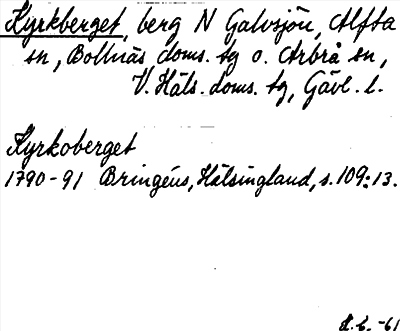 Kyrkberget, berg N Galvsjön, Alfta
sn, Bollnäs doms. tg o. Arbrå sn,
V. Häls. doms. tg, Gävl. l.
Kyrkoberget
1790-91 Bringéus, Hälsingland, s. 109:13.
-61